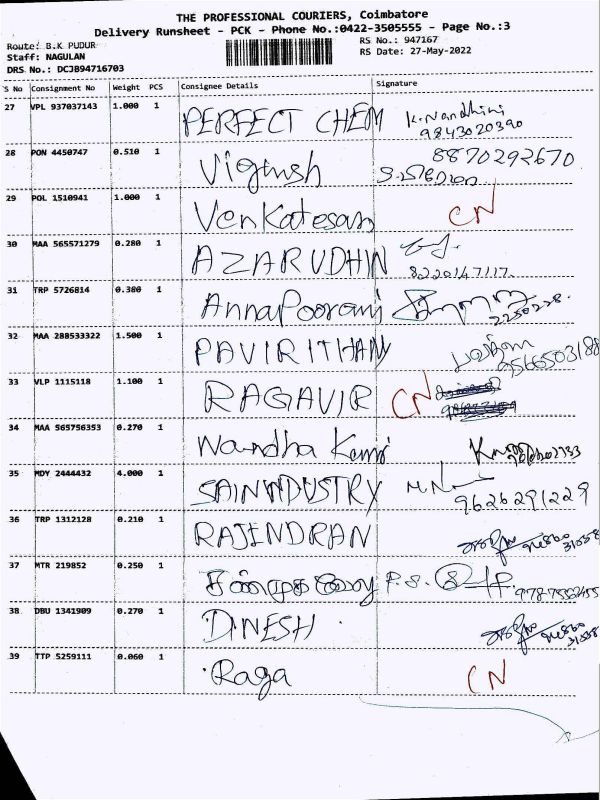 THE PROFESSIONAL COURIERS, Coimbatore
Delivery Runsheet - PCK - Phone No.:0422-3505555 - Page No.:3
Route: B.K PUDUR RS No.: 947167
Staff: NAGULAN RS Date: 27-May-2022
DRS No.: DCJB94716703
S No Consignment No Weight PCS Consignee Details Signature
27 VPL 937037143 1.000 1 PERFECT CHEM K.Nandhini
9843020390
28 PON 4450747 0.510 1 Vignesh 8870292670
29 POL 1510941 1.000 1 Venkatesan CN
30 MAA 565571279 0.280 1 AZARUDHIN
8220147117
31 TRP 5726814 0.380 1 AnnaPoorani
2250228
32 MAA 288533322 1.500 1 PAVIRITHAN
9566503188
33 VLP 1115118 1.100 1 RAGAVIR CN
34 MAA 565756353 0.270 1 Nandha
35 MDY 2444432 4.000 1 SAININDUSTRY
9626291229
36 TRP 1312128 0.210 1 RAJENDRAN
37 MTR 219852 0.250 1 P.S.
38 DBU 1341909 0.270 1 DINESH
39 TTP 5259111 0.060 1 Raga CN